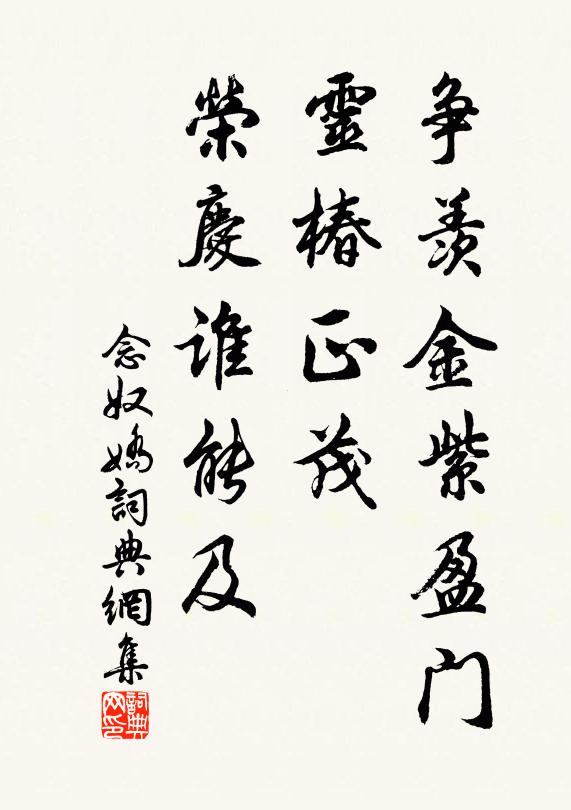 争羡金紫盈门
靈椿正茂
榮慶誰能及
念奴嬌詞典網集
詞典网印